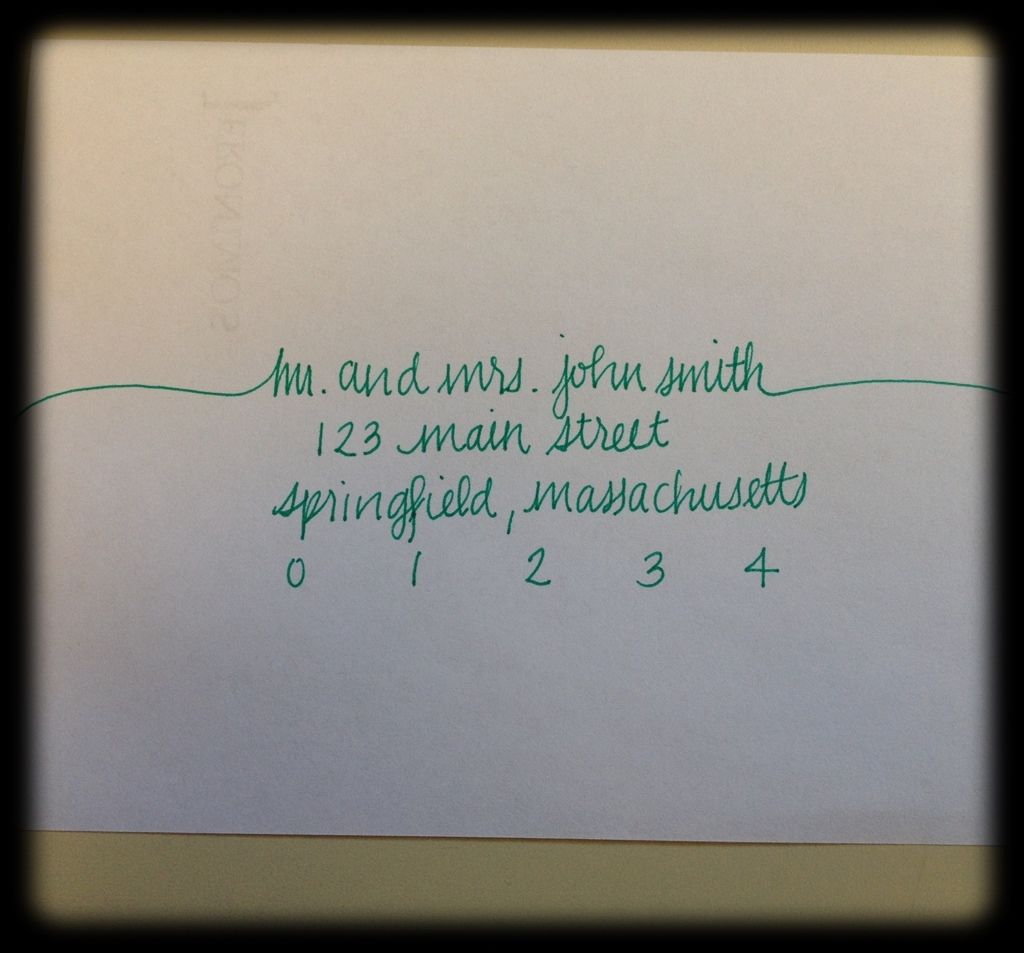 mr. and mrs. john smith
123 main street
springfield, massachusetts
0 1 2 3 4